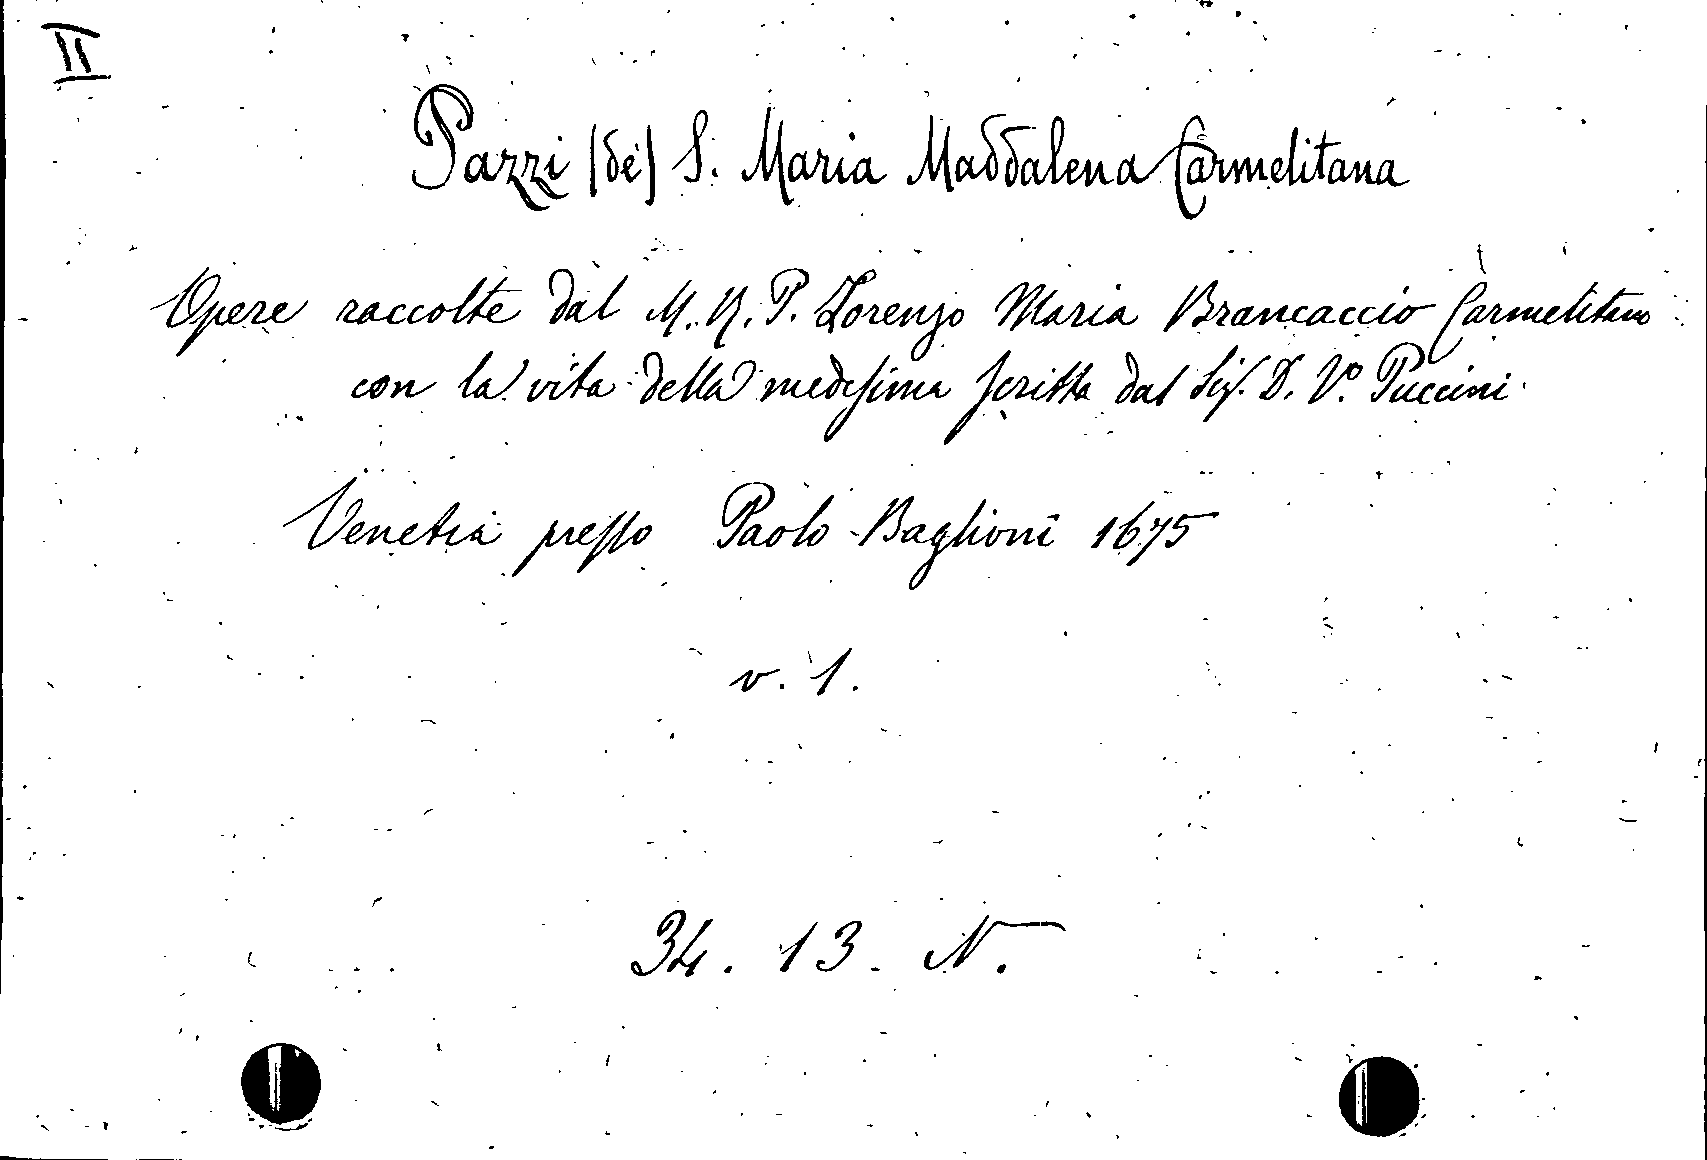 II
Pazzi (de') S. Maria Maddalena Carmelitana
Opere raccolte dal M. R. P. Lorenzo Maria Brancaccio Carmelitano
con la vita della medesima scritta dal Sig. D. Vº. Puccini
Venetia presso Paolo Baglioni 1675
v. 1.
34. 13. N.